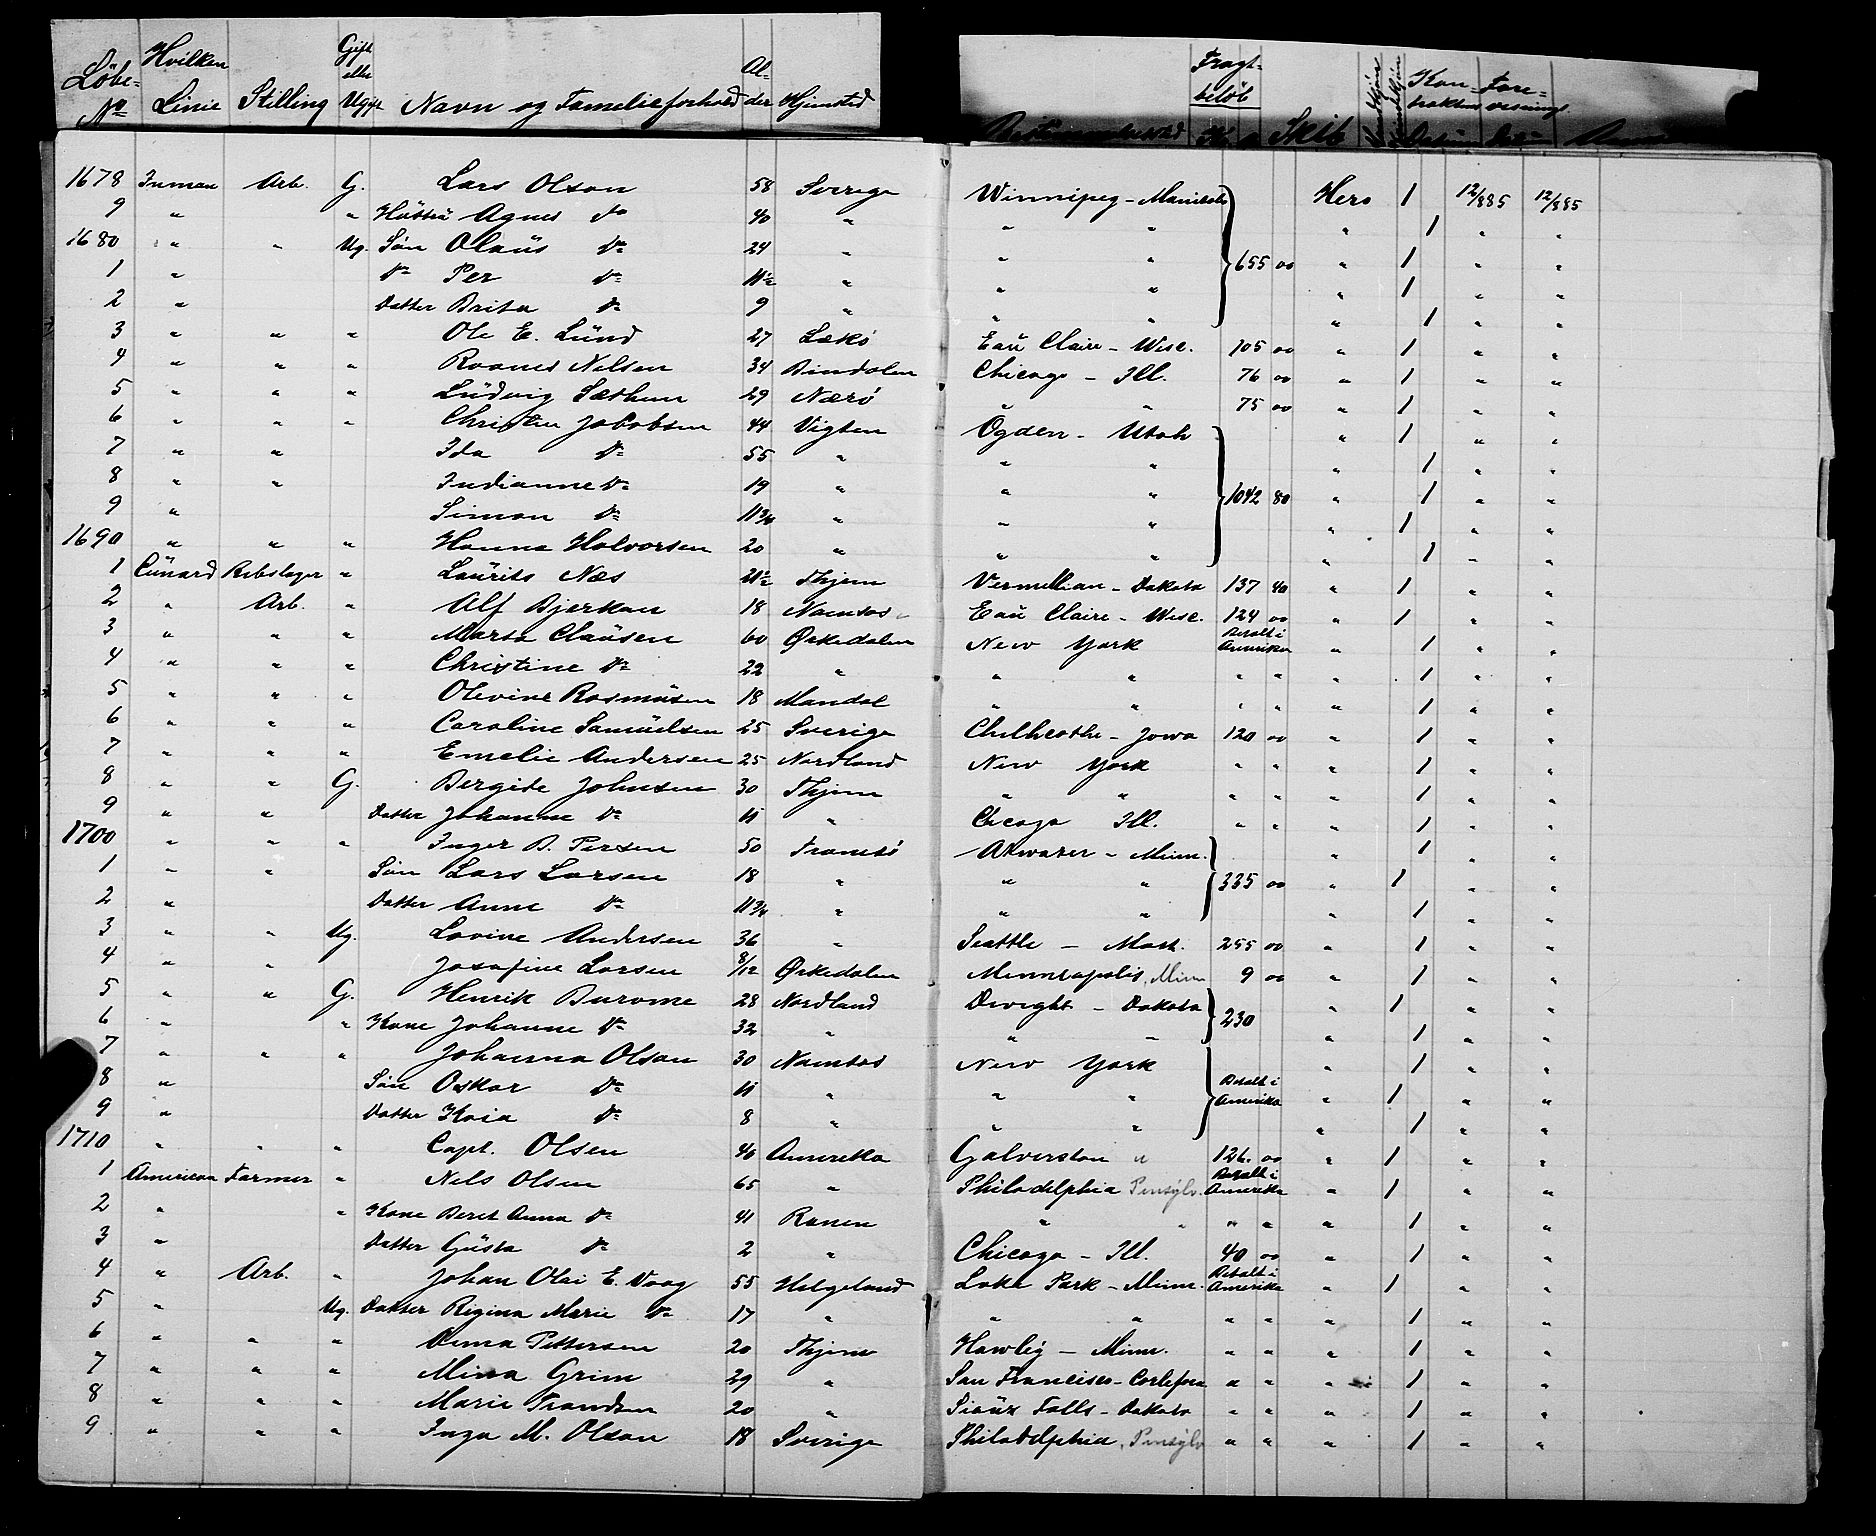 Löbe-No Hvilken Linie Stilling Gift eller Ugift Navn og Familieforhold Alder Hjemsted Bestemmelsessted Fragtbelöb K. Skib Mandkjön Kvindekjön Kontraktens Datum Forevisnings Datum
1678 Inman Arb. G. Lars Olson 58 Sverige Winnipeg - Manitoba Hero 1 12/885 12/885
9 " " Agnes do 40 " " " " 1 " "
1680 " " Ug. Søn Olaüs do 24 " " " } 655 00 " 1 " "
1 " do Per do 11½ " " " " 1 " "
2 " Datter Brita do 9 " " " " 1 " "
3 " " " Ole E. Lünd 27 Lekö Eaü Claire - Wisc. 105 00 " 1 " "
4 " " " Nelsen 34 Bindalen Chicago - Ill. 76 00 " 1 " "
5 " " " Lüdvig Sæthem 29 Nærö " " 75 00 " 1 " "
6 " " " Jakobsen 44 Vigten Ogden - Utah " 1 " "
7 " " Ida do 55 " " " " 1 " "
8 " " Indianne do 19 " " " } 1042 80 " 1 " "
9 " Simon do 11¾ " " " " 1 " "
1690 " " " Hanna Halvorsen 20 " " " " 1 " "
1 Cünard Rebslager " Laürits Næs 21½ Thjem Vermillian - Dakota 137 40 " 1 " "
2 " Arb. " Alf Bjerkan 18 Namsos Eaü Claire - Wisc. 124 00 " 1 " "
3 " " " Marta Claüsen 60 Ørkedalen New York Betalt i Amerika " 1 " "
4 " " " Christine do 22 " " " " " " 1 " "
5 " " " Olevine Rasmüsen 18 Mandal " " " " " 1 " "
6 " " " Caroline Samüelsen 25 Sverige Chelheothe - Jowa 120 00 " 1 " "
7 " " " Emelie Andersen 25 Nordland New York " " " 1 " "
8 " " G. Bergide Johnsen 30 Thjem " " " " " 1 " "
9 " " Datter Johanne do 11 " Chicago Ill. " " " 1 " "
1700 " " " Inger B. Persen 50 Tromsö Atwater - Minn. " 1 " "
1 " " Søn Lars Larsen 18 " " " } 335 00 " 1 " "
2 " Datter Anne do 11¾ " " " " 1 " "
3 " " Ug. Lovine Andersen 36 " Seattle - Wash. 255 00 " 1 " "
4 " " Josafine Larsen 8/12 Ørkedalen Minneapolis, Minn 9 00 " 1 " "
5 " " G. Henrik 28 Nordland Dwight - Dakota } 230 " 1 " "
6 " " Kone Johanne do 32 " " " " 1 " "
7 " " " Johanna Olsan 30 Namsos New York " 1 " "
8 " Søn Oskar do 11 " " " } Betalt i Amerika " 1 " "
9 " Datter Kaia do 8 " " " " 1 " "
1710 " " " Capt. Olsen 40 Amerika Galverston " 126. 00 " 1 " "
1 American Farmer " Nels Olsen 65 " Philadelphia Pensylv. Betalt i Amerika " 1 " "
2 " " Kone Beret Anna do 41 Ranen " " " " " 1 " "
3 " Datter Güsta do 2 " Chicago - Ill. 40 00 " 1 " "
4 " Arb. " Johan Olai E. Vaag 55 Helgeland Lake Park - Minn. Betalt i Amerika " 1 " "
5 " Ug. Datter Regina Marie do 17 " " " " " " 1 " "
6 " " " Anna Pettersen 20 Thjem Hawley - Minn. " " " 1 " "
7 " " " Mina Grim 29 " San Francisco - " " " 1 " "
8 " " " Marie Trandsen 20 " Sioux Falls - Dakota " " " 1 " "
9 " " " Inga M. Olsan 18 Sverige Philadelphia, Pensylv " " " 1 " "